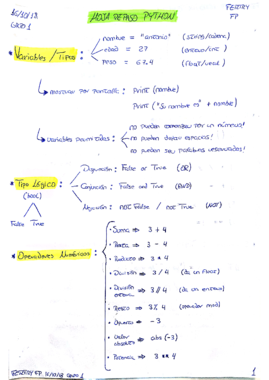 16/10/18
GRUPO 1
HOJA REPASO PYTHON
FP
• Variables / Tipos:
nombre = "antonio"
edad = 27 (entero/int)
peso = 63.4 (float/real)
↳ mostrar por pantalla: Print (nombre)
Print ("Su nombre es" + nombre)
↳ variables permitidas: no pueden comenzar por un número!
no pueden dejar espacios!
no pueden ser palabras reservadas!
• Tipo Lógico:
(bool)
False True
Disyunción: False or True (OR)
Conjunción: False and True (AND)
Negación: not False / not True (NOT)
• Operadores Numéricos:
• Suma ⇒ 3 + 4
• Resta ⇒ 3 - 4
• Producto ⇒ 3 * 4
• División ⇒ 3 / 4 (da un float)
• División entera ⇒ 3 // 4 (da un entero)
• Resto ⇒ 3 % 4
• Opuesto ⇒ -3
• Valor absoluto ⇒ abs(-3)
• Potencia ⇒ 3 ** 4
FP 16/10/18 GRUPO 1
1